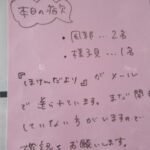 本日の病欠
・風邪…2名
・様子見…1名
『ほけんだより』がメール
で送られています。まだ開
していない方がいますので
お願いします。